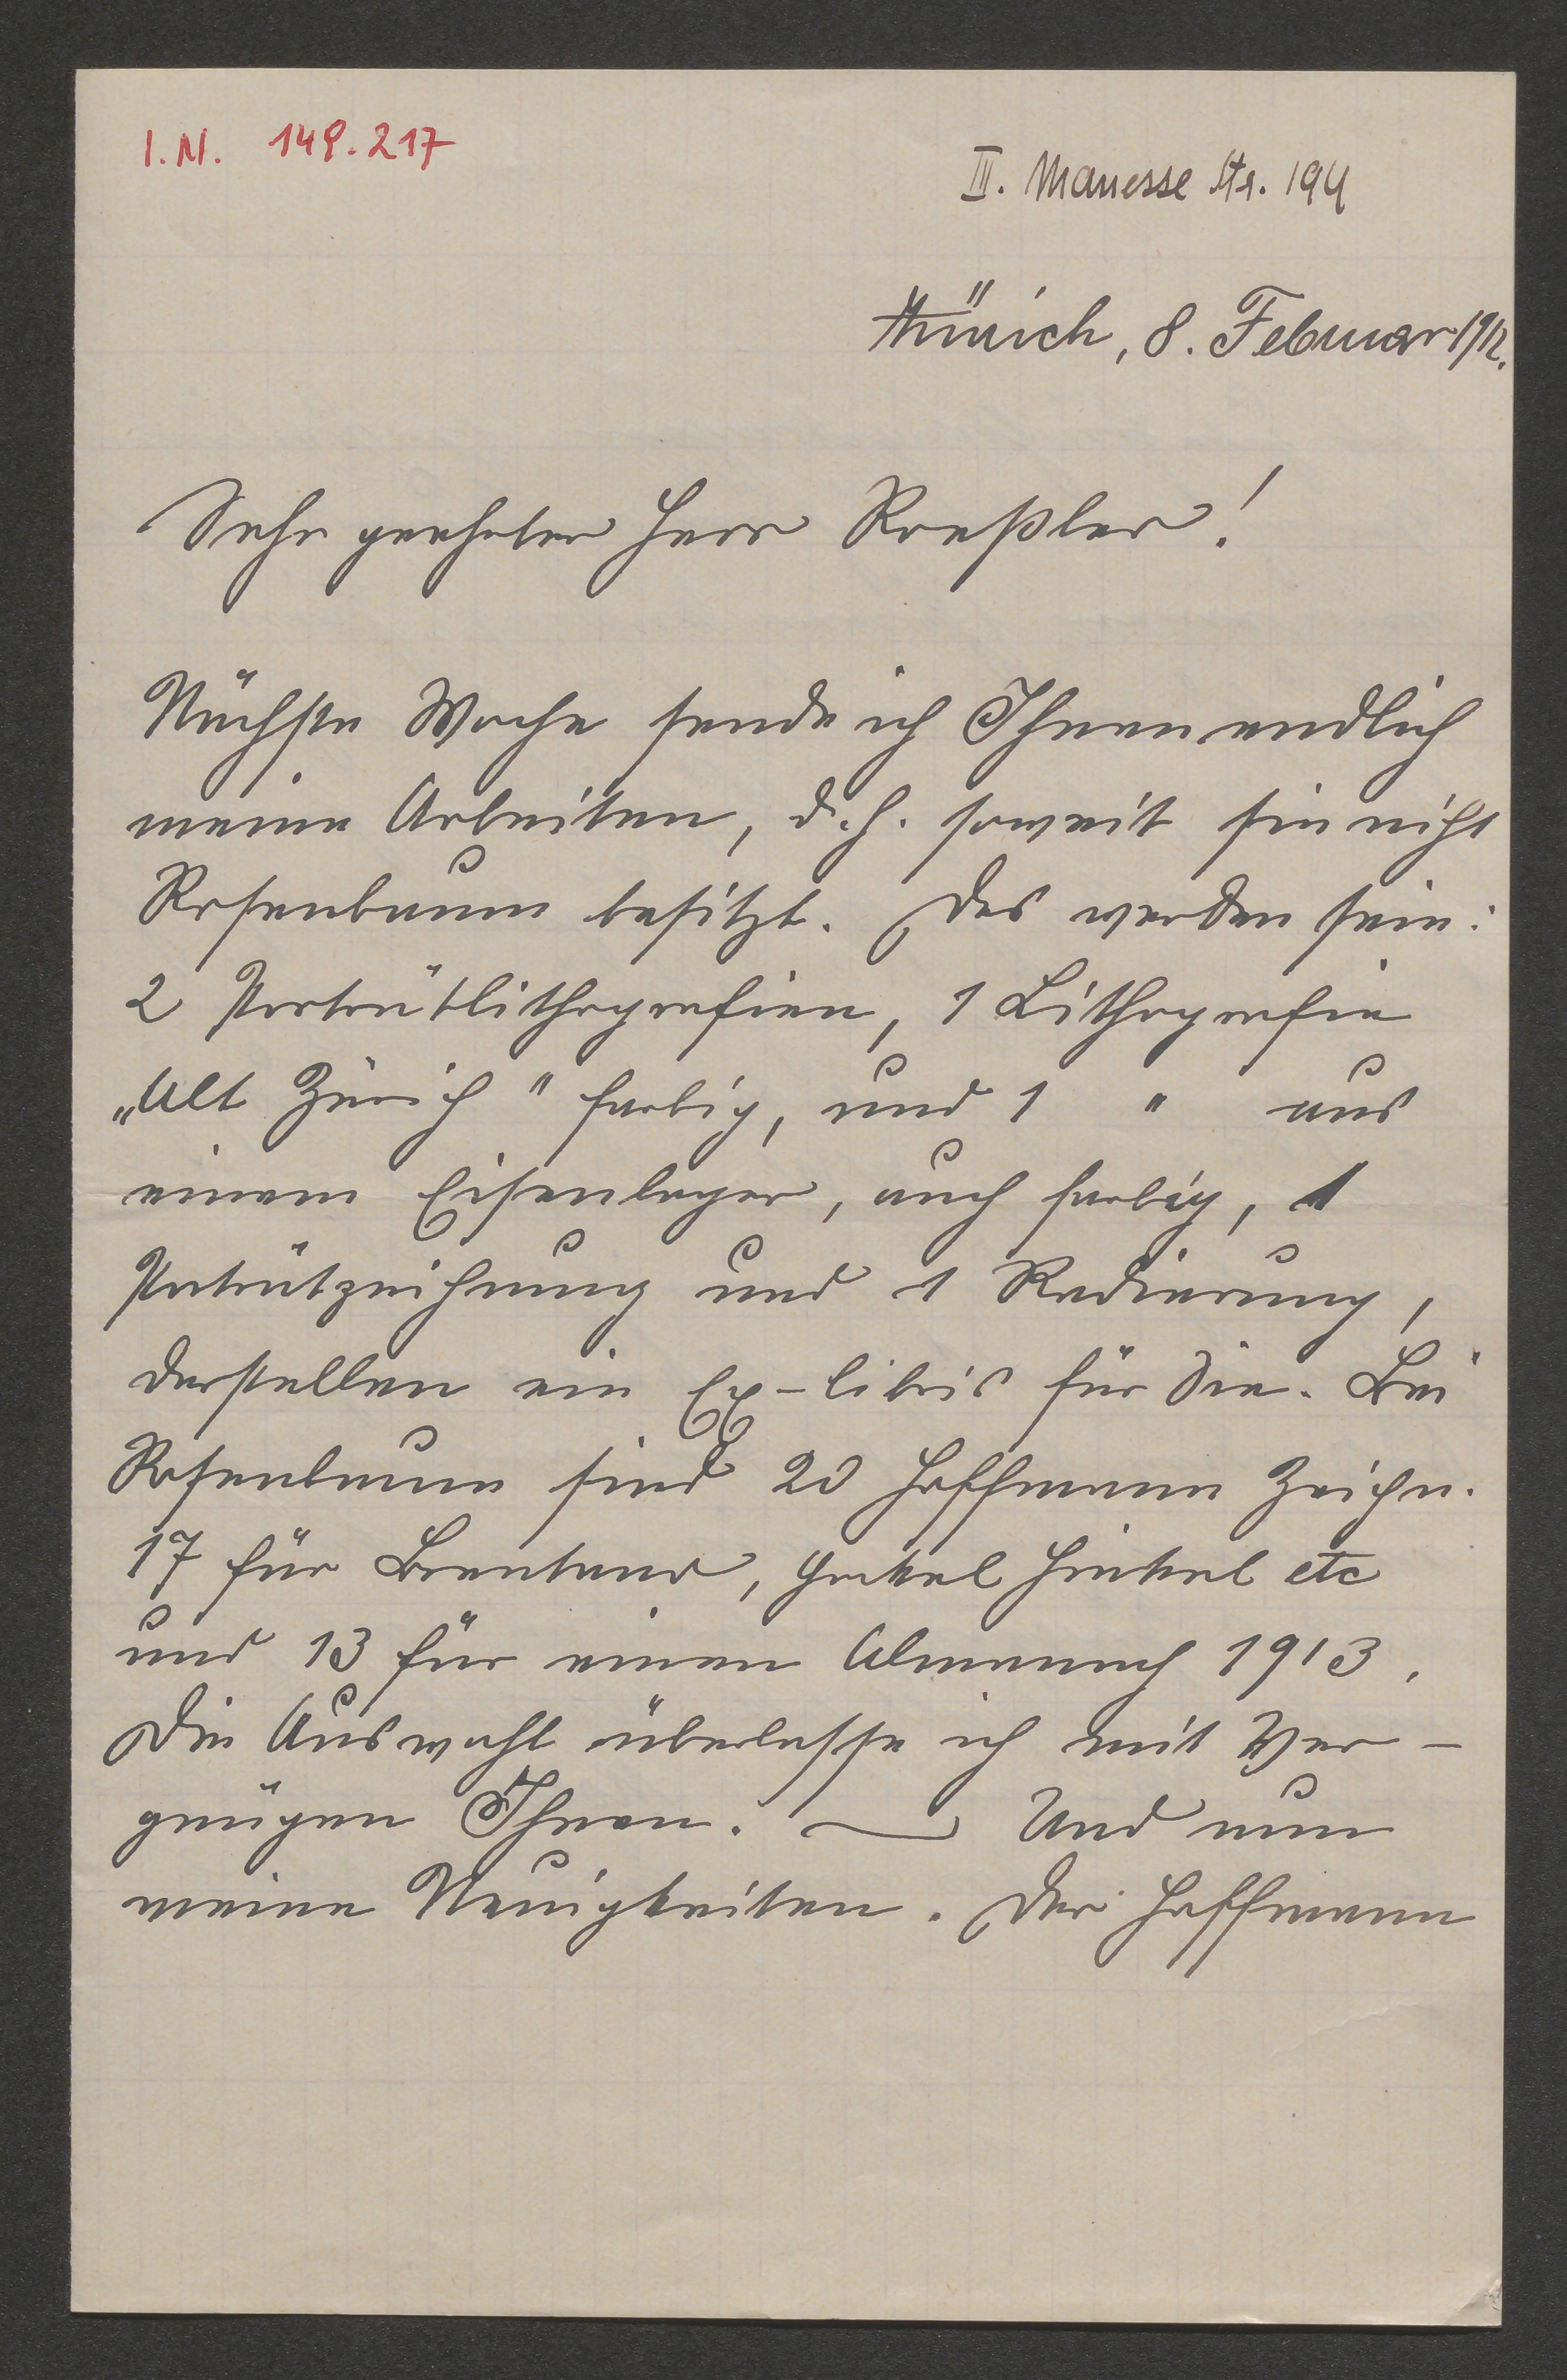 I.N. 149.217
III. Manesse Str. 194
Zürich, 8. Februar 1912.
Sehr geehrter Herr Roeßler!
Nächste Woche sende ich Ihnen endlich
meine Arbeiten, d.h. soweit sie nicht
Rosenbaum besitzt. Das werden sein:
2 Porträtlithografien, 1 Lithografie
„Alt Zürich" farbig, und 1 " aus
einem Eisenlager, auch farbig, 1
Porträtzeichnung und 1 Radierung,
darstellen ein Ex-libris für Sie. Bei
Rosenbaum sind 20 Hoffmann Zeichn.
17 für Brentano, Gockel Hinkel etc
und 13 für einen Almanach 1913.
Die Auswahl überlasse ich mit Ver-
gnügen Ihnen. — Und nun
meine Neuigkeiten. Der Hoffmann